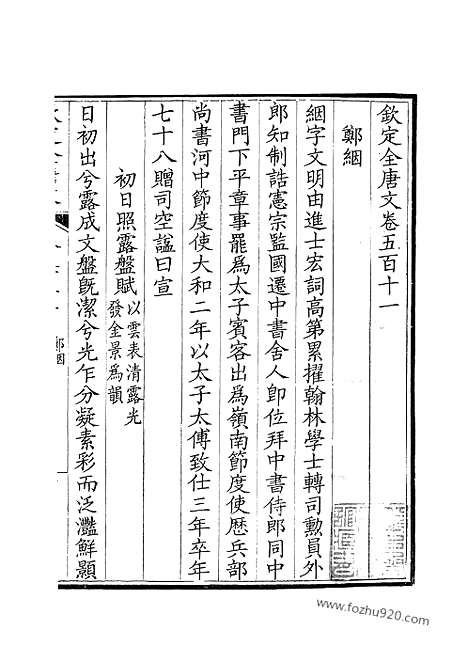 欽定全唐文卷五百十一
鄭絪
絪字文明由進士宏詞高第累擢翰林學士轉司勲員外
郎知制誥憲宗監國遷中書舍人卽位拜中書侍郎同中
書門下平章事罷爲太子賓客出爲嶺南節度使歴兵部
尚書河中節度使大和二年以太子太傅致仕三年卒年
七十八贈司空諡曰宣
初日照露盤賦以雲表清露光
發金景爲韻
日初出兮露成文盤旣潔兮光乍分凝素彩而泛灩鮮顥
鄭絪
一
www.fozhu920.com